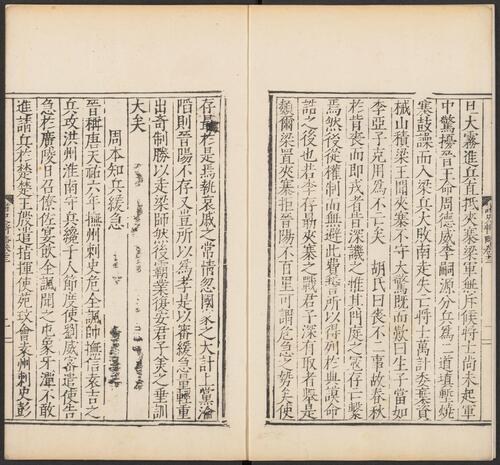 旦大霧進兵直抵夾寨梁軍無斥候將士尚未起軍
中驚擾晉王命周德威李嗣源分兵為二道填塹燒
寨鼓譟而入梁兵大敗南走失亡將士萬計委棄資
械山積梁王聞夾寨不守大驚既而歎曰生子當如
李亞子克用為不亡矣 胡氏曰喪不二事故春秋
於背喪而即戎者皆深譏之惟其門庭之寇存亡繫
焉然後從權制而無避此費誓所以得列於典謨命
誥之後也若李存勗夾寨之戰君子深有取者蓋是
爾梁置夾寨拒晉陽不百里可謂危急之勢矣使
存勗於是焉執哀戚之常情忽國家之大計上黨淪
陷則晉陽不存又豈所以為孝是以審緩急量輕重
出奇制勝以走梁師然後霸業復安君子美之垂訓
大矣
周本知兵緩急
晉稱唐天祐六年撫州刺史危全諷帥撫信袁吉之
兵攻洪州淮南守兵纔千人節度使劉威密遣使告
急於廣陵日召僚佐宴飲全諷聞之屯象牙潭不敢
進請兵於楚楚王殷遣指揮使苑玫會袁州刺史彭